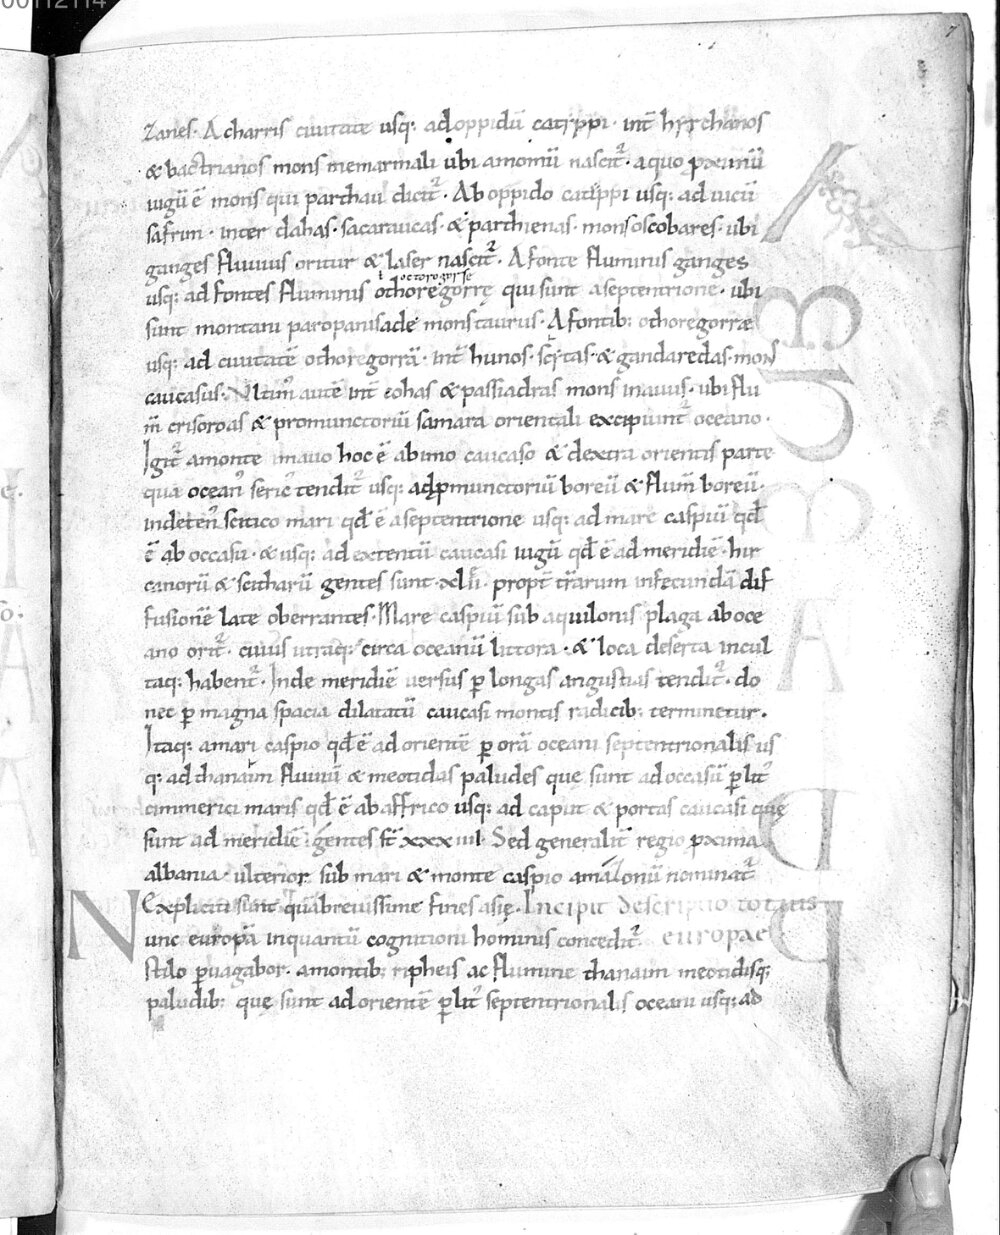 00112114
7
zanes· A charris ciuitate usq: ad oppidū catippi· int̄ hyrchanos
& bactrianos mons memarmali ubi amomū nascit᷑· a quo ꝓximū
iugū ē mons qui parthau dicit᷑· Ab oppido catippi usq: ad uicū
safrim· inter dahas· sacaraucas· & parthienas· mons oscobares· ubi
ganges fluuius oritur & laser nascit᷑· A fonte fluminis ganges
octorogorre
usq: ad fontes fluminis othoregorrę qui sunt a septentrione· ubi
sunt montani paropanisade mons taurus· A fontib: othoregorræ
usq: ad ciuitatē othoregorrā· int̄ hunos· scytas· & gandaredas· mons
caucasus· Ultim᷒ autē int̄ eohas & passiadras mons inauus· ubi flu
m̄ crisoroas & promunctoriū samara orientali excipiunt᷑ oceano·
Igit᷑ a monte imauo hoc ē ab imo caucaso & dextra orientis parte
qua ocean᷒ seric᷒ tendit᷑ usq: ad ꝓmunctoriū boreū & flum̄ boreū·
inde ten᷒ scitico mari qđ ē a septentrione usq: ad mare caspiū qđ
ē ab occasu· & usq: ad extentū caucasi iugū qđ ē ad meridiē· hir
canorū & scitharū gentes sunt· xlii· propt̄ t̄rarum infecundā dif
fusionē late oberrantes· Mare caspiū sub aquilonis plaga ab oce
ano orit᷑· cuius utraq: circa oceanū littora· & loca deserta incul
taq: habent᷑· Inde meridiē uersus ꝑ longas angustias tendit᷑· do
nec ꝑ magna spacia dilatatū caucasi montis radicib: terminetur·
Itaq: a mari caspio qđ ē ad orientē ꝑ orā oceani septentrionalis us
q: ad thanaim fluuiū & meotidas paludes quę sunt ad occasū ꝑ lit᷒
cimmerici maris qđ ē ab affrico usq: ad caput & portas caucasi quę
sunt ad meridiē gentes st̄ xxxiiii· Sed generalit̄ regio ꝓxima
albania· ulterior sub mari & monte caspio amazonū nominat᷑
Expliciti sunt quā breuissime fines asię· Incipit descriptio totius
Nunc europā inquantū cognitioni hominis concedit᷑ europae
stilo ꝑuagabor· a montib: ripheis ac flumine thanaim meotidisq;
paludib: quę sunt ad orientē ꝑ lit᷒ septentrionalis oceani usq: ad